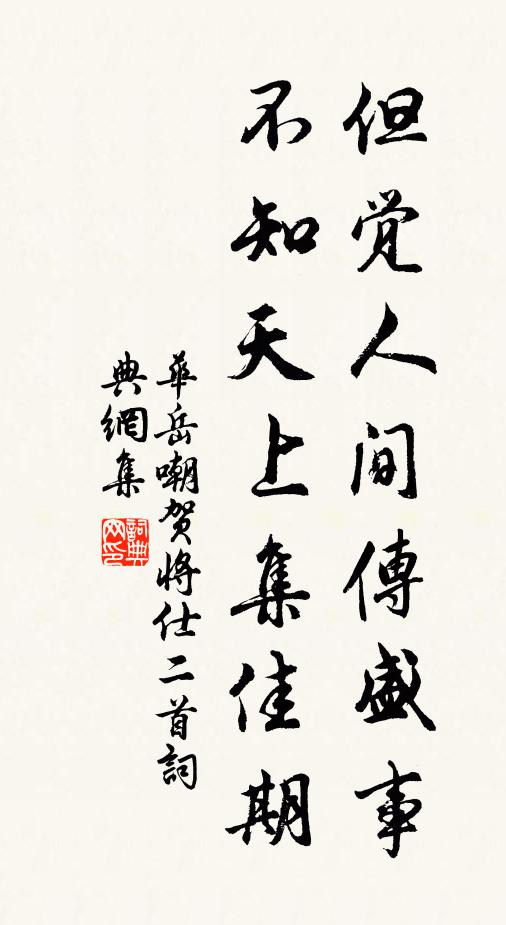 但觉人间傳盛事
不知天上集佳期
華岳嘲贺將仕二首詞
典網集
詞典网印